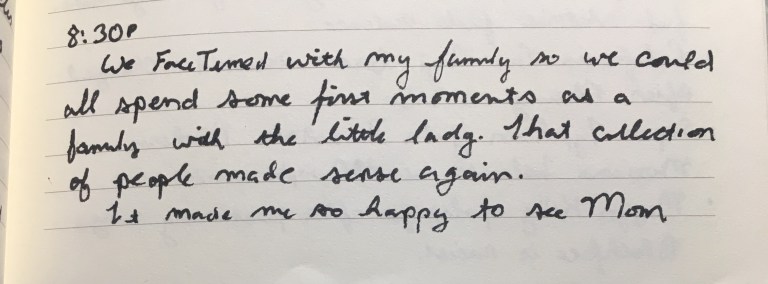 8:30P
We FaceTimed with my family so we could
all spend some first moments as a
family with the little lady. That collection
of people made sense again.
It made me so happy to see Mom